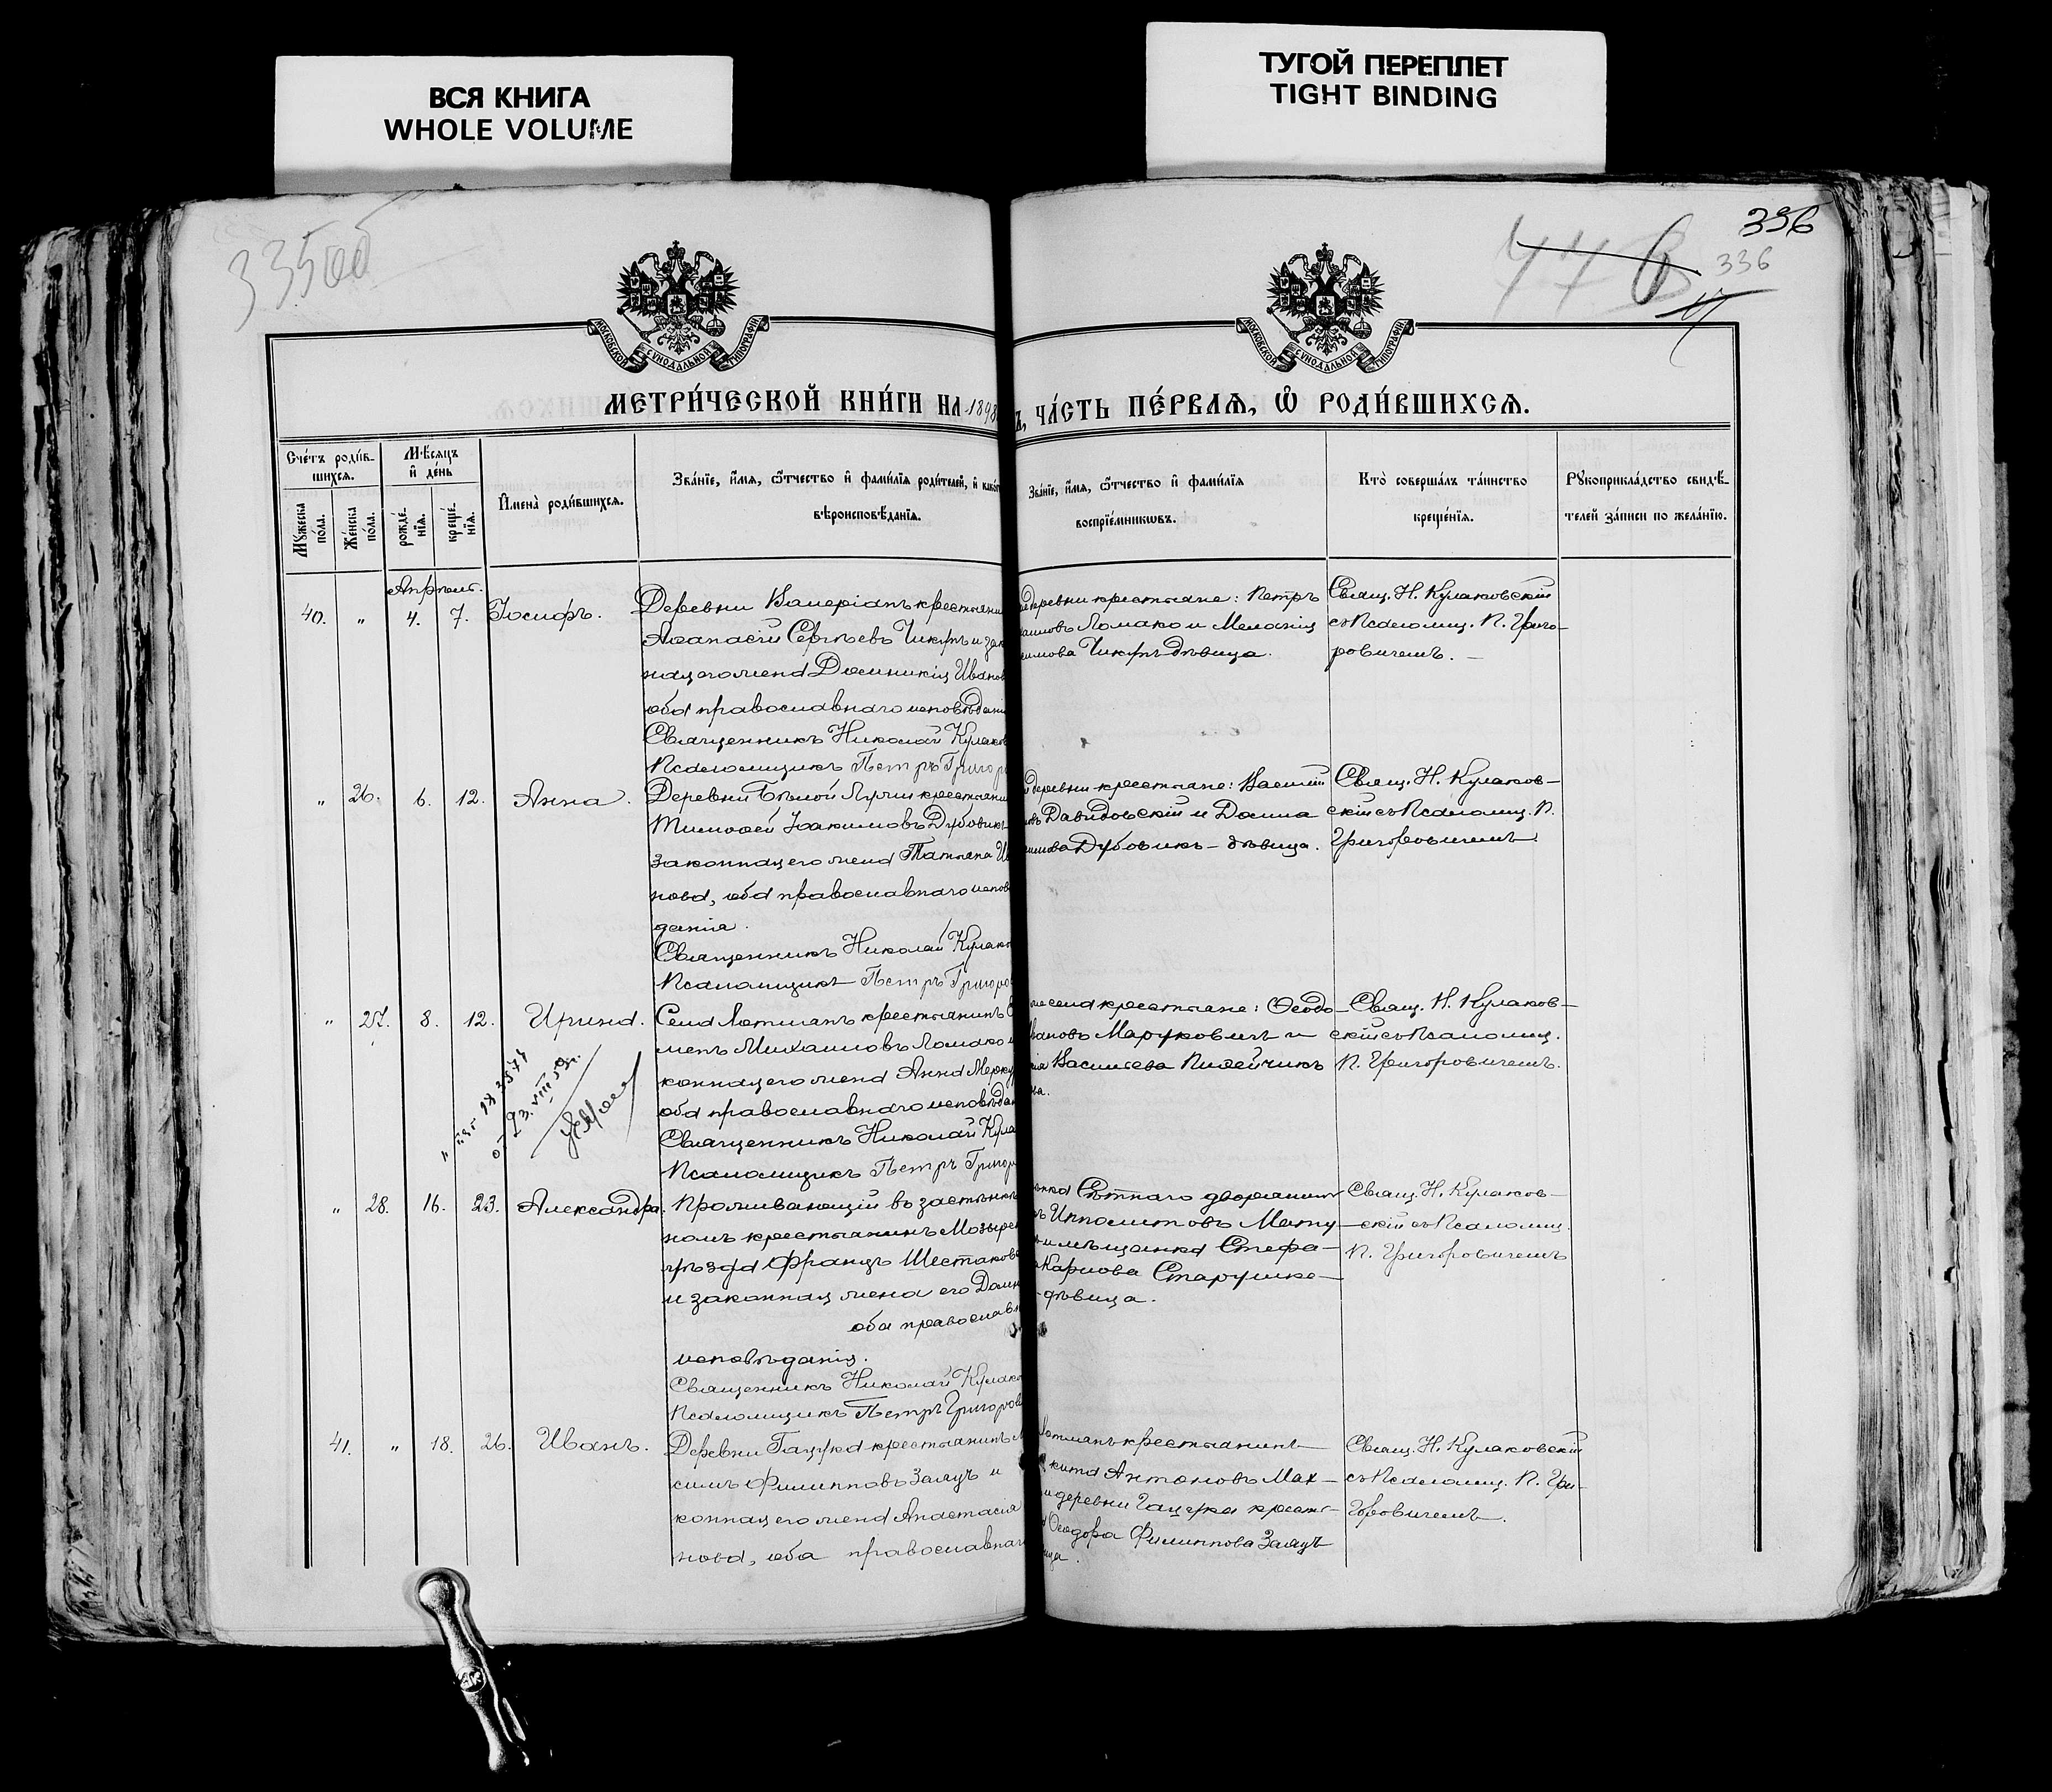 ВСЯ КНИГА
WHOLE VOLUME
ТУГОЙ ПЕРЕПЛЕТ
TIGHT BINDING
335об
336
336
МОСКОВСКОЙ СѴНОДАЛЬНОЙ ТИПОГРАФІИ
МОСКОВСКОЙ СѴНОДАЛЬНОЙ ТИПОГРАФІИ
МЕТРИ́ЧЕСКОЙ КНИ́ГИ НА 1898
Ъ, ЧА́СТЬ ПЕ́РВАѦ, Ѡ РОДИ́ВШИХСѦ.
Сче́тъ роди́в-
шихсѧ.
Мꙋжеска по́ла.
Же́нска по́ла.
Мѣ́сѧцъ и҆ де́нь
рожде́-нїѧ.
креще́-нїѧ.
И҆мена̀ роди́вшихсѧ.
Зва́нїе, и҆́мѧ, ѻ҆́тчество и҆ фами́лїѧ роди́телей, и҆ како́г
вѣроисповѣ́данїѧ.
Зва́нїе, и҆́мѧ, ѻ҆́тчество и҆ фами́лїѧ
воспрїе́мникѡвъ.
Кто̀ соверша́лъ та́инство
креще́нїѧ.
Рꙋкоприкла́дство свидѣ́-
телей за́писи по жела́нїю.
Апрѣль.
40. „ 4. 7. Іосифъ.
Деревни Валеріанъ крестьяни
Аѳанасій Сергѣевъ Чикунъ и зак
ная его жена Домникія Иванов
оба православнаго исповѣдані
Священникъ Николай Кулаков
Псаломщикъ Петръ Григоро
деревни крестьяне: Петръ
Ломако и Меланія
дѣвица.
Свящ. Н. Кулаковскій
съ Псаломщ. П. Григо-
ровичемъ. –
„ 26. 6. 12. Анна.
Деревни Бѣлой Лужи крестьяни
Тимоѳей Іоакимовъ Дубовикъ
законная его жена Татьяна Ив
нова, оба православнаго испов
данія.
Священникъ Николай Кулако
Псаломщикъ Петръ Григоро
деревни крестьяне: Василій
Давидовскій и Домна
Дубовикъ – дѣвица.
Свящ. Н. Кулаков-
скій съ Псаломщ. П.
Григоровичемъ.
„ 27. 8. 12. Ирина.
Села Хотлянъ крестьянинъ
менъ Михаиловъ Ломако и
конная его жена Анна Мерку
оба православнаго исповѣдан
Священникъ Николай Кула
Псаломщикъ Петръ Григор
села крестьяне: Ѳеодо-
Марковичъ и
Васильева Пилейчикъ
Свящ. Н. Кулаков-
скій съ Псаломщ.
П. Григоровичемъ.
23. VIII 59г.
„ 28. 16. 23. Александра.
Проживающій въ застѣнкѣ
номъ крестьянинъ Мозырск
уѣзда Францъ Шестаков
и законная жена его Домн
оба православн
исповѣданія.
Священникъ Николай Кулако
Псаломщикъ Петръ Григоров
дворянинъ
Ипполитовъ Мату-
мѣщанка Стефа-
Карпова Старушке-
дѣвица.
Свящ. Н. Кулаков-
скій съ Псаломщ.
П. Григоровичемъ
41. „ 18. 26. Иванъ.
Деревни Гацука крестьянинъ М
симъ Филипповъ Заяцъ и
конная его жена Анастасія
нова, оба православнаг
крестьянинъ
Антоновъ Мах-
деревни Гацука крест-
Ѳеодора Филиппова Заяцъ
Свящ. Н. Кулаковскій
съ Псаломщ. П. Гри-
горовичемъ.